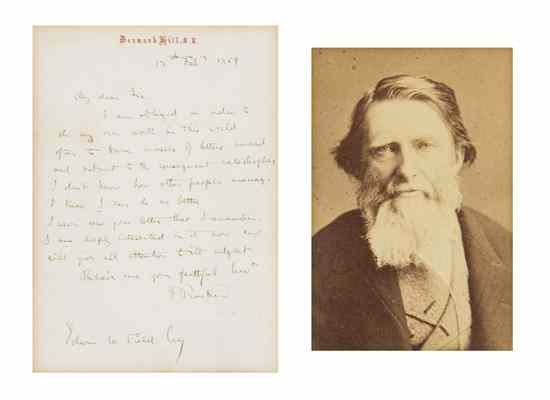 Denmark Hill, S.E.
12th Feb 1869
My dear Sir,
I am obliged in order to
do my own work in this world
often to leave masses of letters unread
and submit to the consequent catastrophes
I don't know how other people manage.
I know I can do no better
I never saw your letter that I remember.
I am deeply interested in it now and
will give all attention to the subject.
Believe me your faithful Servt
J Ruskin
Edwin W Field Esq